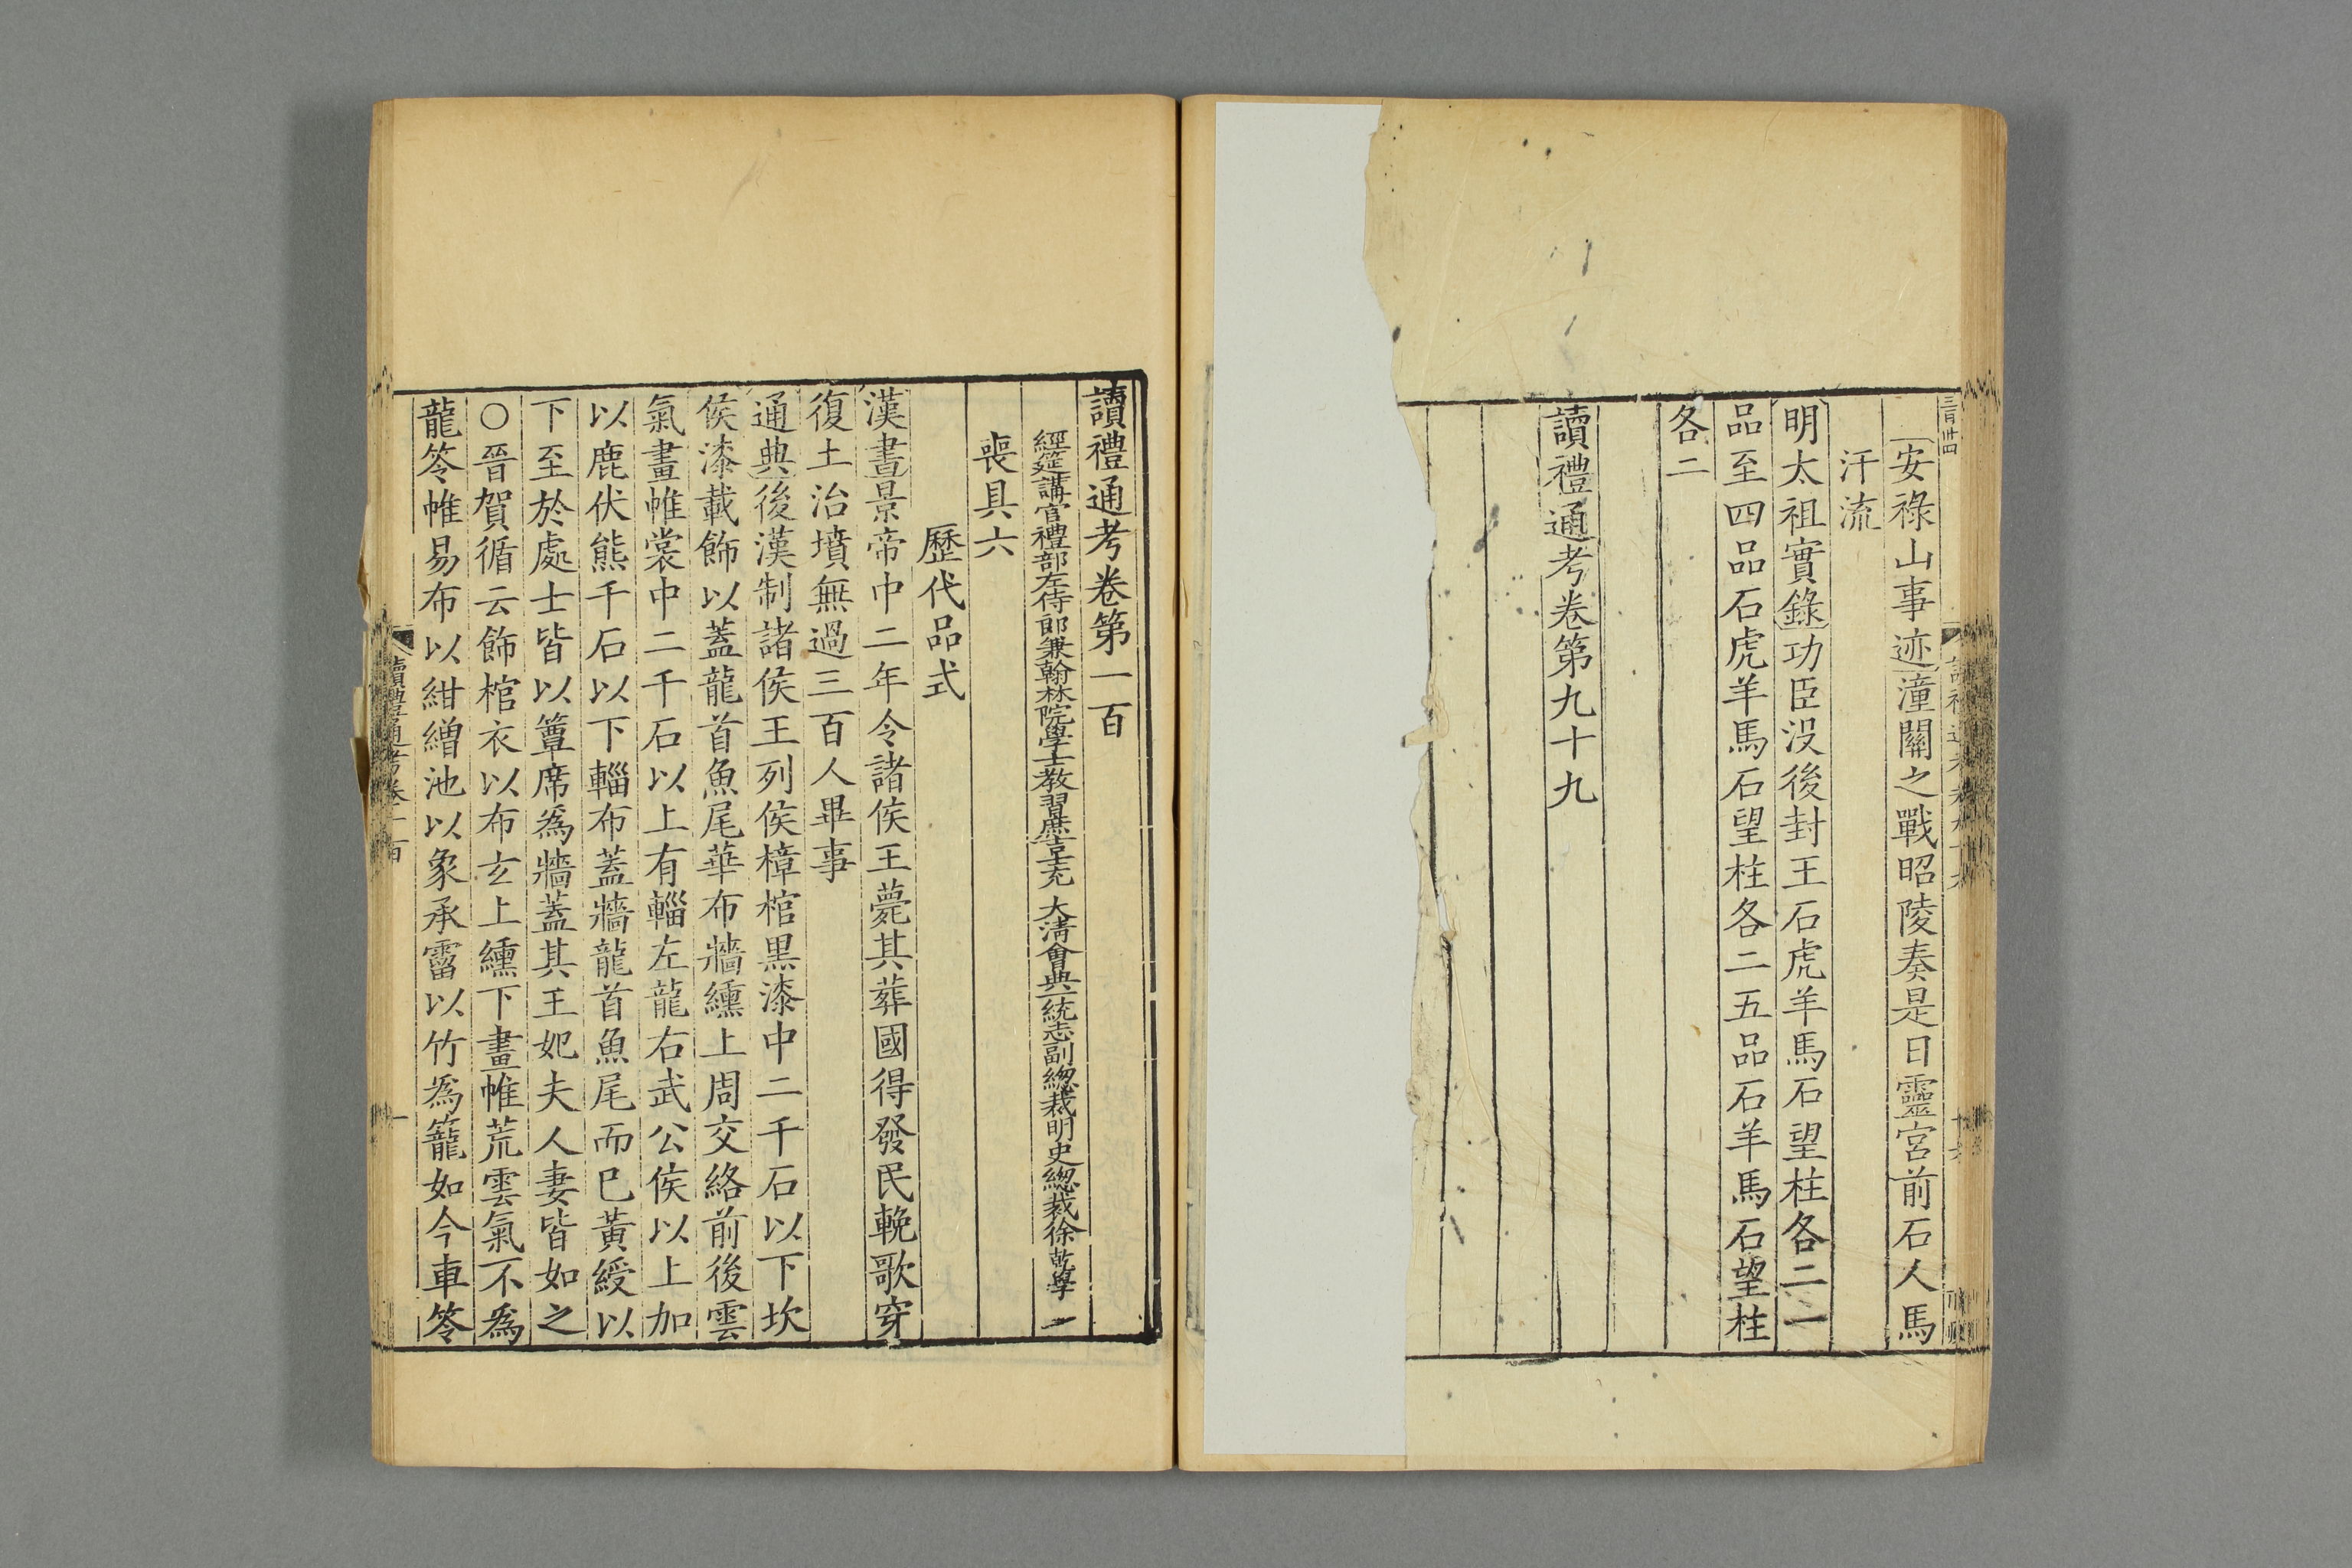 三百卅四
安祿山事迹潼關之戰昭陵奏是日靈宮前石人馬
汗流
明太祖實錄功臣没後封王石虎羊馬石望柱各二一
品至四品石虎羊馬石望柱各二五品石羊馬石望柱
各二
讀禮通考卷第九十九
讀禮通考卷第一百
經筵講官禮部左侍郎兼翰林院學士教習庶吉士充 大淸會典一統志副總裁明史總裁徐乾學 一
喪具六
歷代品式
漢書景帝中二年令諸侯王薨其葬國得發民輓歌穿
復土治墳無過三百人畢事
通典後漢制諸侯王列侯樟棺黑漆中二千石以下坎
侯漆載飾以蓋龍首魚尾華布牆纁上周交絡前後雲
氣畫帷裳中二千石以上有輜左龍右武公侯以上加
以鹿伏熊千石以下輜布蓋牆龍首魚尾而巳黃綬以
下至於處士皆以簟席爲牆蓋其王妃夫人妻皆如之
○晉賀循云飾棺衣以布玄上纁下畫帷荒雲氣不爲
龍笭帷易布以紺繒池以象承霤以竹爲籠如今車笭
讀禮通考卷一百
一